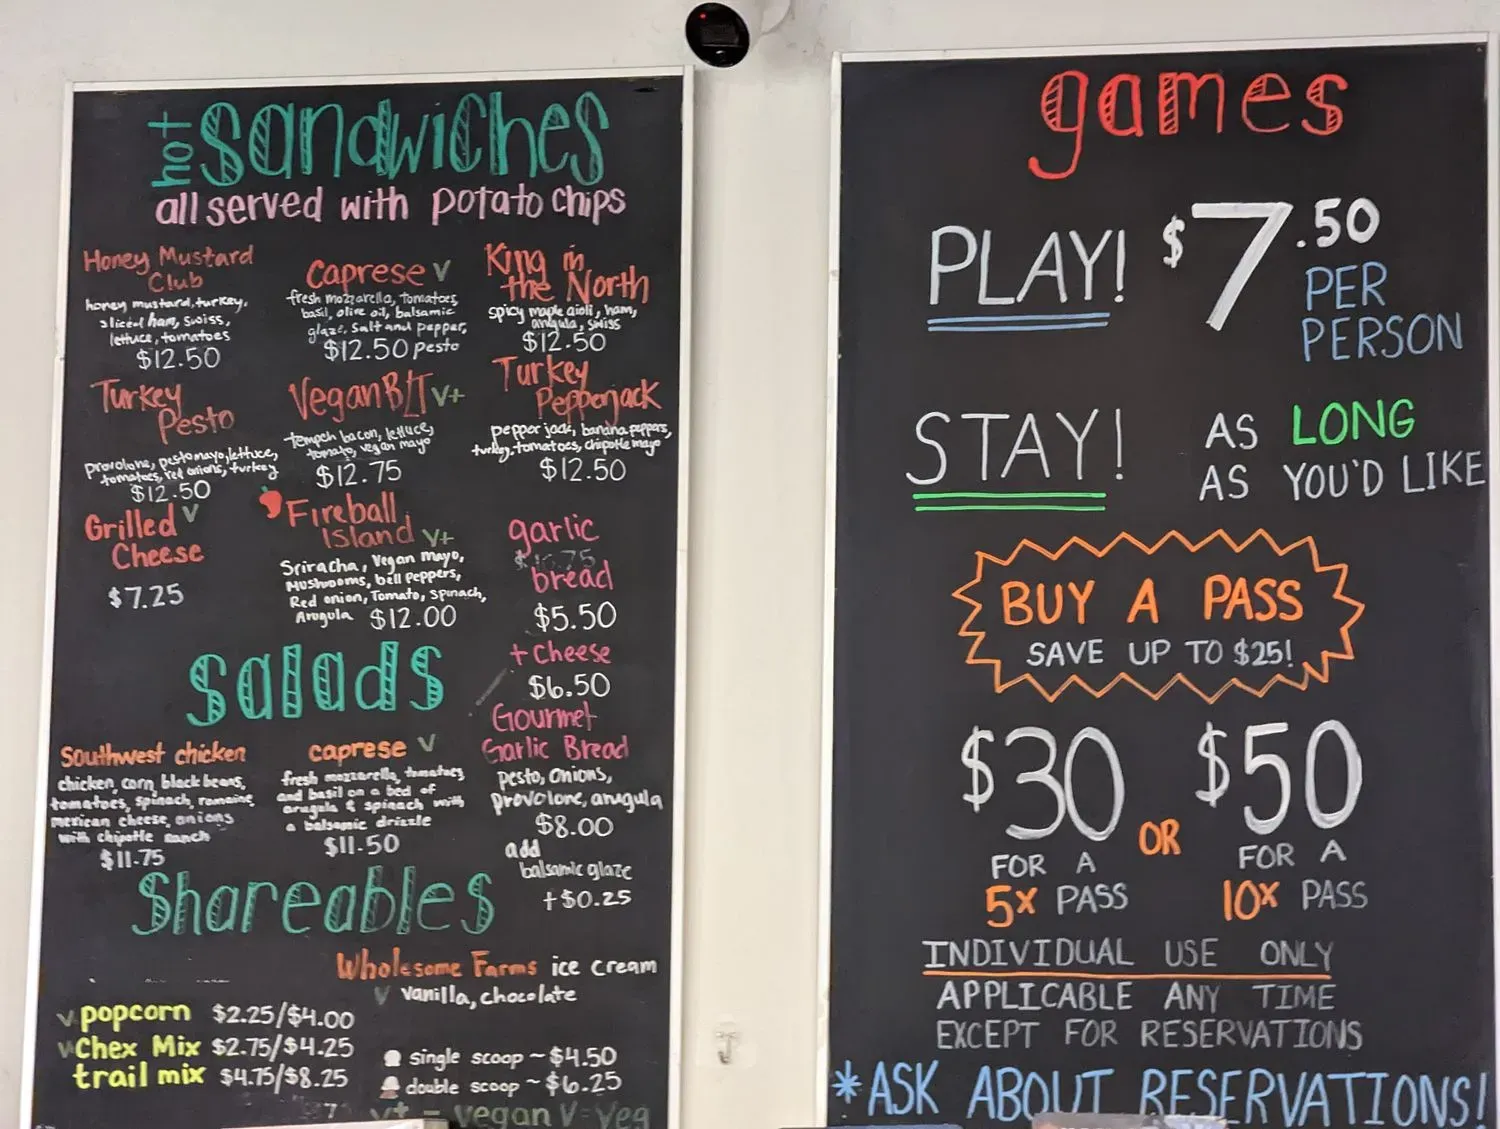 hot sandwiches
all served with potato chips
Honey Mustard
Club
honey mustard, turkey,
sliced ham, swiss,
lettuce, tomatoes
$12.50
Caprese V
fresh mozzarella, tomatoes,
basil, olive oil, balsamic
glaze, salt and pepper,
$12.50 pesto
King in
the North
spicy maple aioli, ham,
arugula, swiss
$12.50
Turkey
Pesto
provolone, pesto mayo, lettuce,
tomatoes, red onions, turkey
$12.50
Vegan BLT V+
tempeh bacon, lettuce,
tomato, vegan mayo
$12.75
Turkey
Pepperjack
pepper jack, banana peppers,
turkey, tomatoes, chipotle mayo
$12.50
Grilled V
Cheese
$7.25
Fireball
Island V+
Sriracha, Vegan Mayo,
Mushrooms, bell Peppers,
Red onion, Tomato, Spinach,
Arugula $12.00
garlic
bread
$5.50
+ cheese
$6.50
Gourmet
Garlic Bread
pesto, onions,
provolone, arugula
$8.00
add
balsamic glaze
+$0.25
salads
Southwest chicken
chicken, corn, black beans,
tomatoes, spinach, romaine,
mexican cheese, onions
with chipotle ranch
$11.75
caprese V
fresh mozzarella, tomatoes,
and basil on a bed of
arugula & spinach with
a balsamic drizzle
$11.50
shareables
Wholesome Farms ice cream
V vanilla, chocolate
V popcorn $2.25/$4.00
V Chex Mix $2.75/$4.25
trail mix $4.75/$8.25
single scoop ~ $4.50
double scoop ~ $6.25
V+ = vegan V = veg
games
PLAY! $7.50
PER
PERSON
STAY! AS LONG
AS YOU'D LIKE
BUY A PASS
SAVE UP TO $25!
$30 OR $50
FOR A
5X PASS
FOR A
10X PASS
INDIVIDUAL USE ONLY
APPLICABLE ANY TIME
EXCEPT FOR RESERVATIONS
*ASK ABOUT RESERVATIONS!